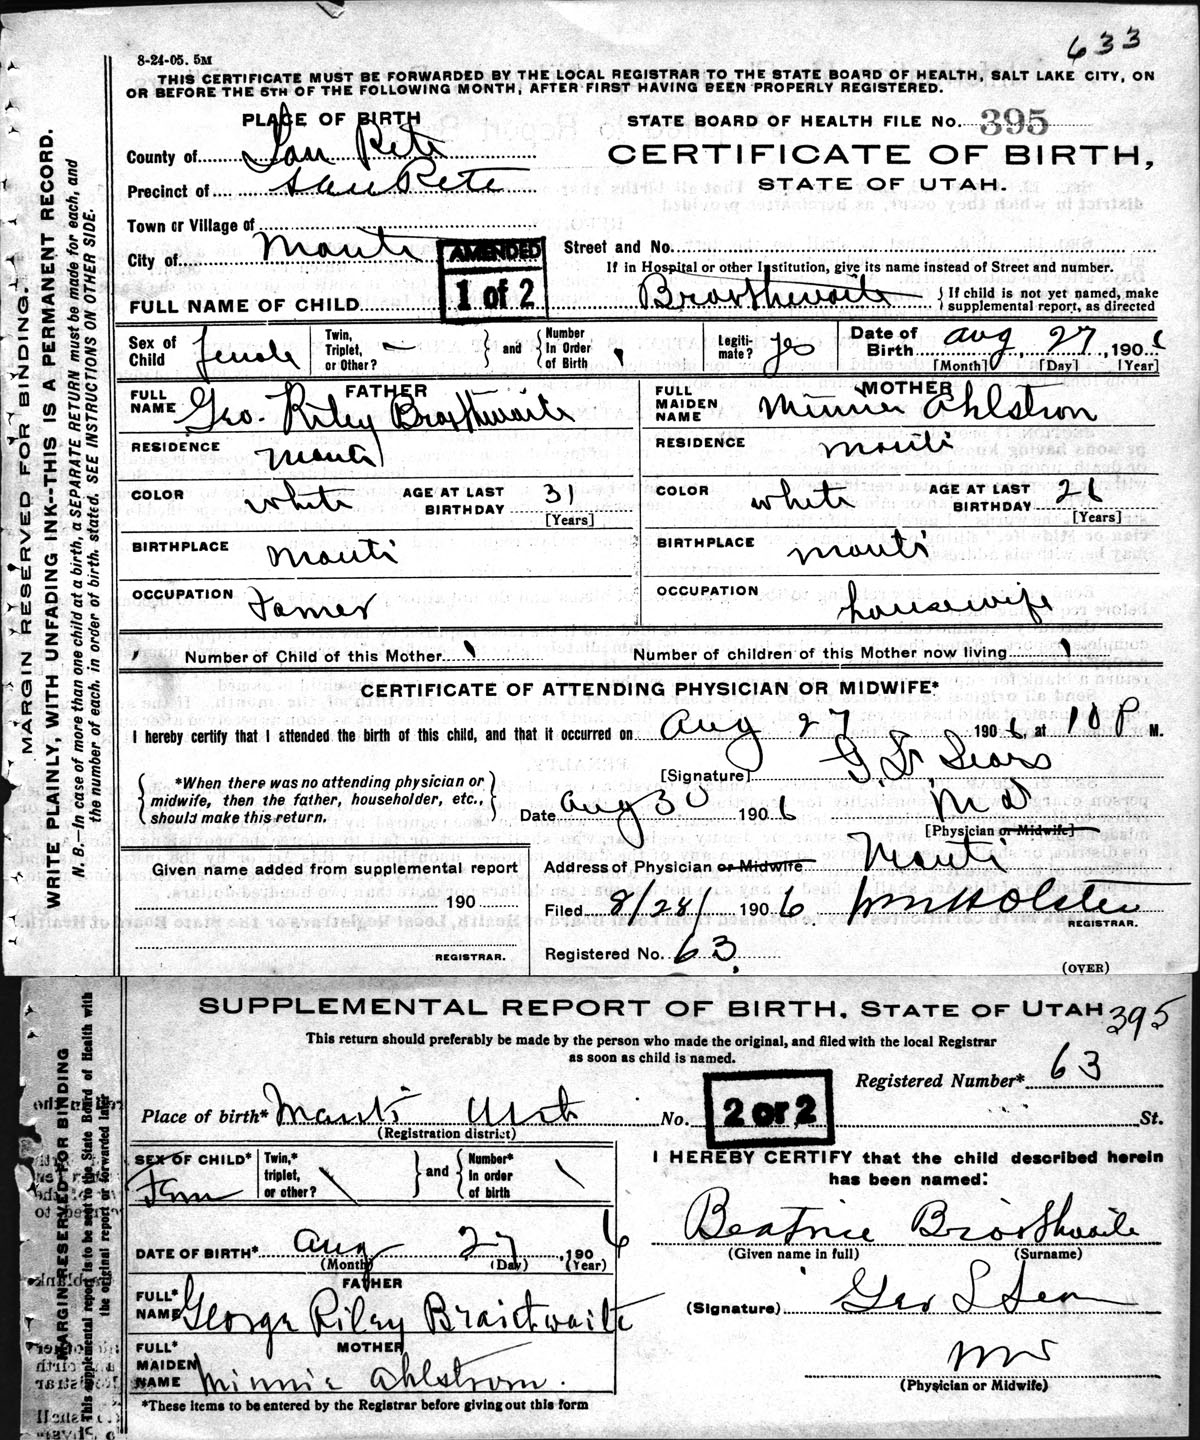 633
8-24-05. 5M
THIS CERTIFICATE MUST BE FORWARDED BY THE LOCAL REGISTRAR TO THE STATE BOARD OF HEALTH, SALT LAKE CITY, ON
OR BEFORE THE 5TH OF THE FOLLOWING MONTH, AFTER FIRST HAVING BEEN PROPERLY REGISTERED.
PLACE OF BIRTH
STATE BOARD OF HEALTH FILE No. 395
County of San Pete
CERTIFICATE OF BIRTH,
Precinct of San Pete
STATE OF UTAH.
Town or Village of
City of Manti
AMENDED
1 of 2
Street and No.
If in Hospital or other Institution, give its name instead of Street and number.
FULL NAME OF CHILD Braithwaite
If child is not yet named, make
supplemental report, as directed
Sex of Child female
Twin, Triplet, or Other? —
and
Number In Order of Birth 1
Legiti-mate? yes
Date of Birth Aug 27, 1906
[Month] [Day] [Year]
FATHER
FULL NAME Geo. Riley Braithwaite
MOTHER
FULL MAIDEN NAME Minnie Ahlstrom
RESIDENCE Manti
RESIDENCE Manti
COLOR white AGE AT LAST BIRTHDAY 31 [Years]
COLOR white AGE AT LAST BIRTHDAY 26 [Years]
BIRTHPLACE Manti
BIRTHPLACE Manti
OCCUPATION Farmer
OCCUPATION housewife
Number of Child of this Mother 1
Number of children of this Mother now living 1
CERTIFICATE OF ATTENDING PHYSICIAN OR MIDWIFE*
I hereby certify that I attended the birth of this child, and that it occurred on Aug 27 1906, at 10 P M.
*When there was no attending physician or
midwife, then the father, householder, etc.,
should make this return.
[Signature] G. L. Sears
Date Aug 30 1906 M D
[Physician or Midwife]
Given name added from supplemental report
190
REGISTRAR.
Address of Physician or Midwife Manti
Filed 8/28/ 1906. Wm Holsted
REGISTRAR.
Registered No. 63
(OVER)
MARGIN RESERVED FOR BINDING.
WRITE PLAINLY, WITH UNFADING INK--THIS IS A PERMANENT RECORD.
N. B.—In case of more than one child at a birth, a SEPARATE RETURN must be made for each, and
the number of each, in order of birth, stated. SEE INSTRUCTIONS ON OTHER SIDE.
SUPPLEMENTAL REPORT OF BIRTH, STATE OF UTAH 395
This return should preferably be made by the person who made the original, and filed with the local Registrar
as soon as child is named.
Registered Number* 63
Place of birth* Manti Utah No. St.
(Registration district)
2 of 2
SEX OF CHILD* Fem
Twin,* triplet, or other?
and
Number* In order of birth
I HEREBY CERTIFY that the child described herein
has been named:
Beatrice Braithwaite
(Given name in full) (Surname)
DATE OF BIRTH* Aug 27, 1906
(Month) (Day) (Year)
FATHER
FULL* NAME George Riley Braithwaite
(Signature) Geo L Sears
MOTHER
FULL* MAIDEN NAME Minnie Ahlstrom.
MD
(Physician or Midwife)
*These items to be entered by the Registrar before giving out this form
MARGIN RESERVED FOR BINDING
This supplemental report is to be sent to the State Board of Health with
the original report or forwarded later